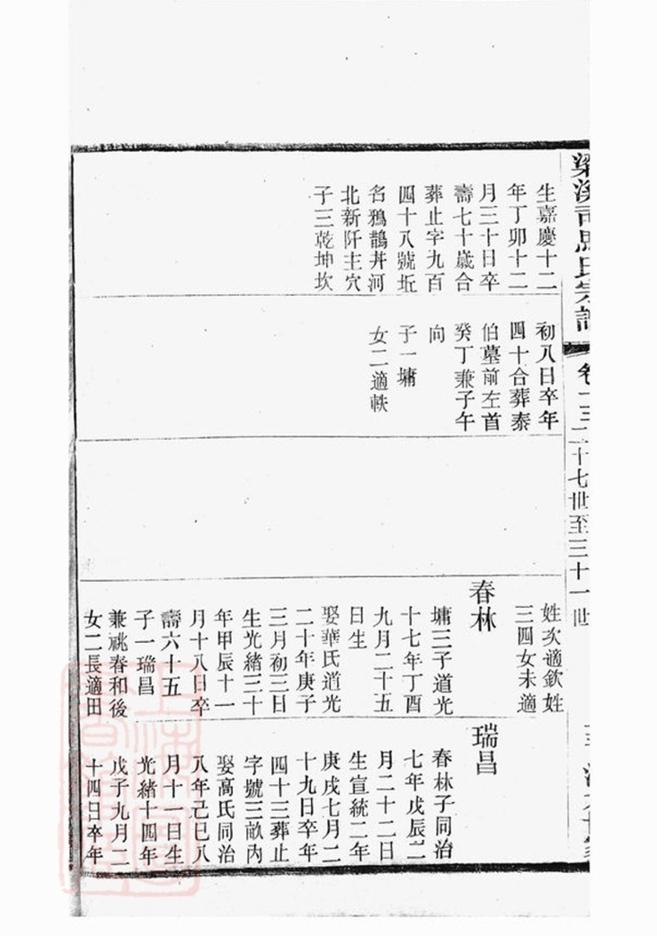 梁溪司馬氏宗譜
卷十三二十七世至三十一世
生嘉慶十二
年丁卯十二
月三十日卒
壽七十歲合
葬止字九百
四十八號坵
名鴉鵲丼河
北新阡主穴
子三乾坤坎
初八日卒年
四十合葬泰
伯墓前左首
癸丁兼子午
向
子一墉
女二適軼
姓次適欽姓
三四女未適
春林
墉三子道光
十七年丁酉
九月二十五
日生
娶華氏道光
二十年庚子
三月初三日
生光緒三十
年甲辰十一
月十八日卒
壽六十五
子一瑞昌
兼祧春和後
女二長適田
瑞昌
春林子同治
七年戊辰二
月二十二日
生宣統二年
庚戌七月二
十九日卒年
四十三葬止
字號三畝內
娶高氏同治
八年己巳八
月十一日生
光緒十四年
戊子九月二
十四日卒年